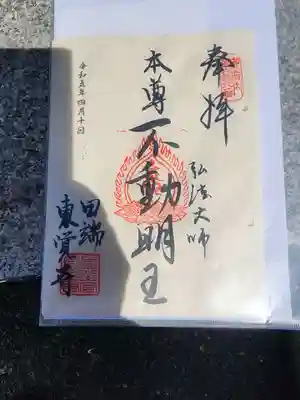 奉拝
弘法大師
本尊不動明王
令和五年四月十日
田端
東覚寺